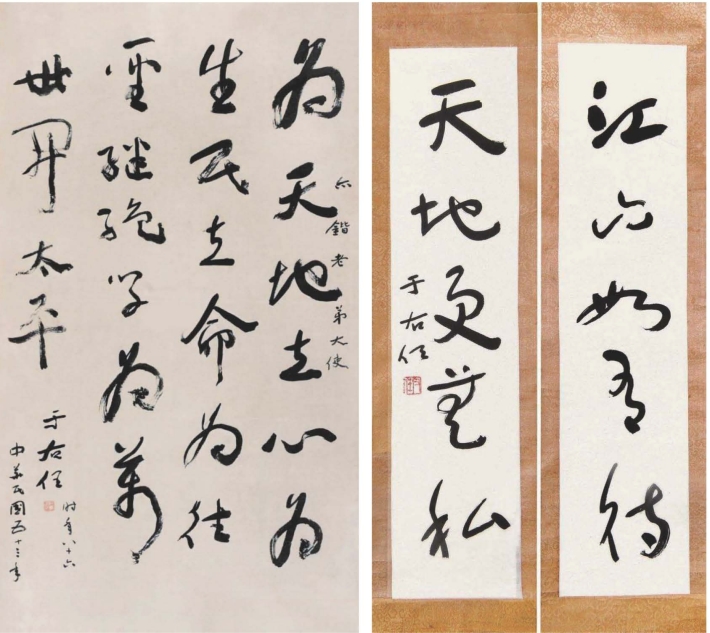 為天地立心為
亦鍇老弟大使
生民立命為往
聖繼絕學為萬
世開太平
于右任
時年八十六
中華民國五十三年
江山如有待
天地更無私
于右任